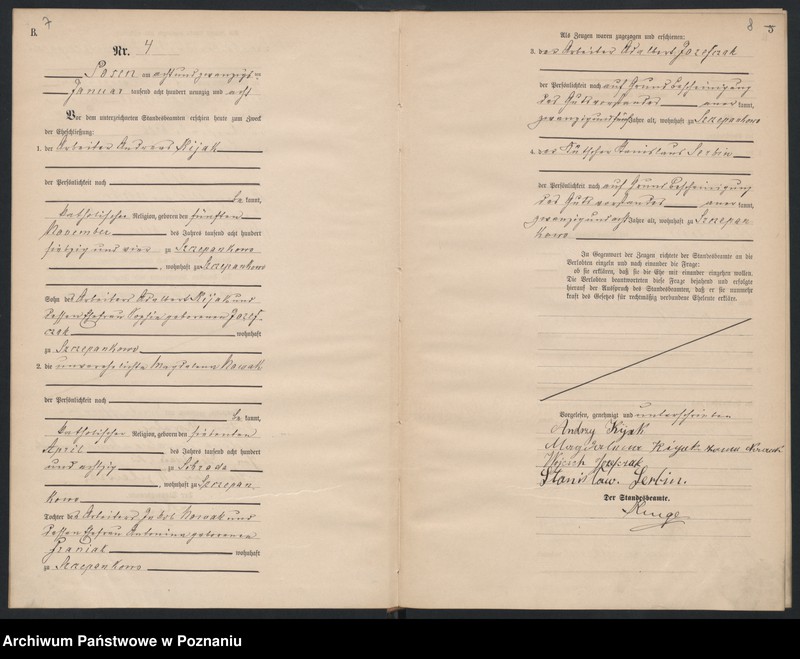 B. 7
Nr. 4
Posen am achtundzwanzigsten
Januar tausend acht hundert neunzig und acht
Vor dem unterzeichneten Standesbeamten erschien heute zum Zweck
der Eheschließung:
1. der Arbeiter Andreas Kijak
der Persönlichkeit nach
be kannt,
katholischer Religion, geboren den fünften
November des Jahres tausend acht hundert
siebzig und vier zu Szczepankowo
, wohnhaft zu Szczepankowo
Sohn des Arbeiters Adalbert Kijak und
dessen Ehefrau Sophie geborenen Józef-
czak wohnhaft
zu Szczepankowo
2. die unverehelichte Magdalena Nowak
der Persönlichkeit nach
be kannt,
katholischer Religion, geboren den siebenten
April des Jahres tausend acht hundert
und achtzig zu Schroda
, wohnhaft zu Szczepan-
kowo
Tochter des Arbeiters Jakob Nowak und
dessen Ehefrau Antonina geborenen
wohnhaft
zu Szczepankowo
8
Als Zeugen waren zugezogen und erschienen:
3. der Arbeiter Adalbert
der Persönlichkeit nach auf Grund Bescheinigung
des Gutsvorstandes aner kannt,
zwanzigundfünf Jahre alt, wohnhaft zu Szczepankowo
4. der Kutscher Stanislaus Serbin
der Persönlichkeit nach auf Grund Bescheinigung
des Gutsvorstandes aner kannt,
zwanzigundacht Jahre alt, wohnhaft zu Szczepan-
kowo
In Gegenwart der Zeugen richtete der Standesbeamte an die
Verlobten einzeln und nach einander die Frage:
ob sie erklären, daß sie die Ehe mit einander eingehen wollen.
Die Verlobten beantworteten diese Frage bejahend und erfolgte
hierauf der Ausspruch des Standesbeamten, daß er sie nunmehr
kraft des Gesetzes für rechtmäßig verbundene Eheleute erkläre.
Vorgelesen, genehmigt und unterschrieben
Andrzej Kijak
Magdalena Kijak
Wojciech
Stanisław Serbin.
Der Standesbeamte.
Archiwum Państwowe w Poznaniu